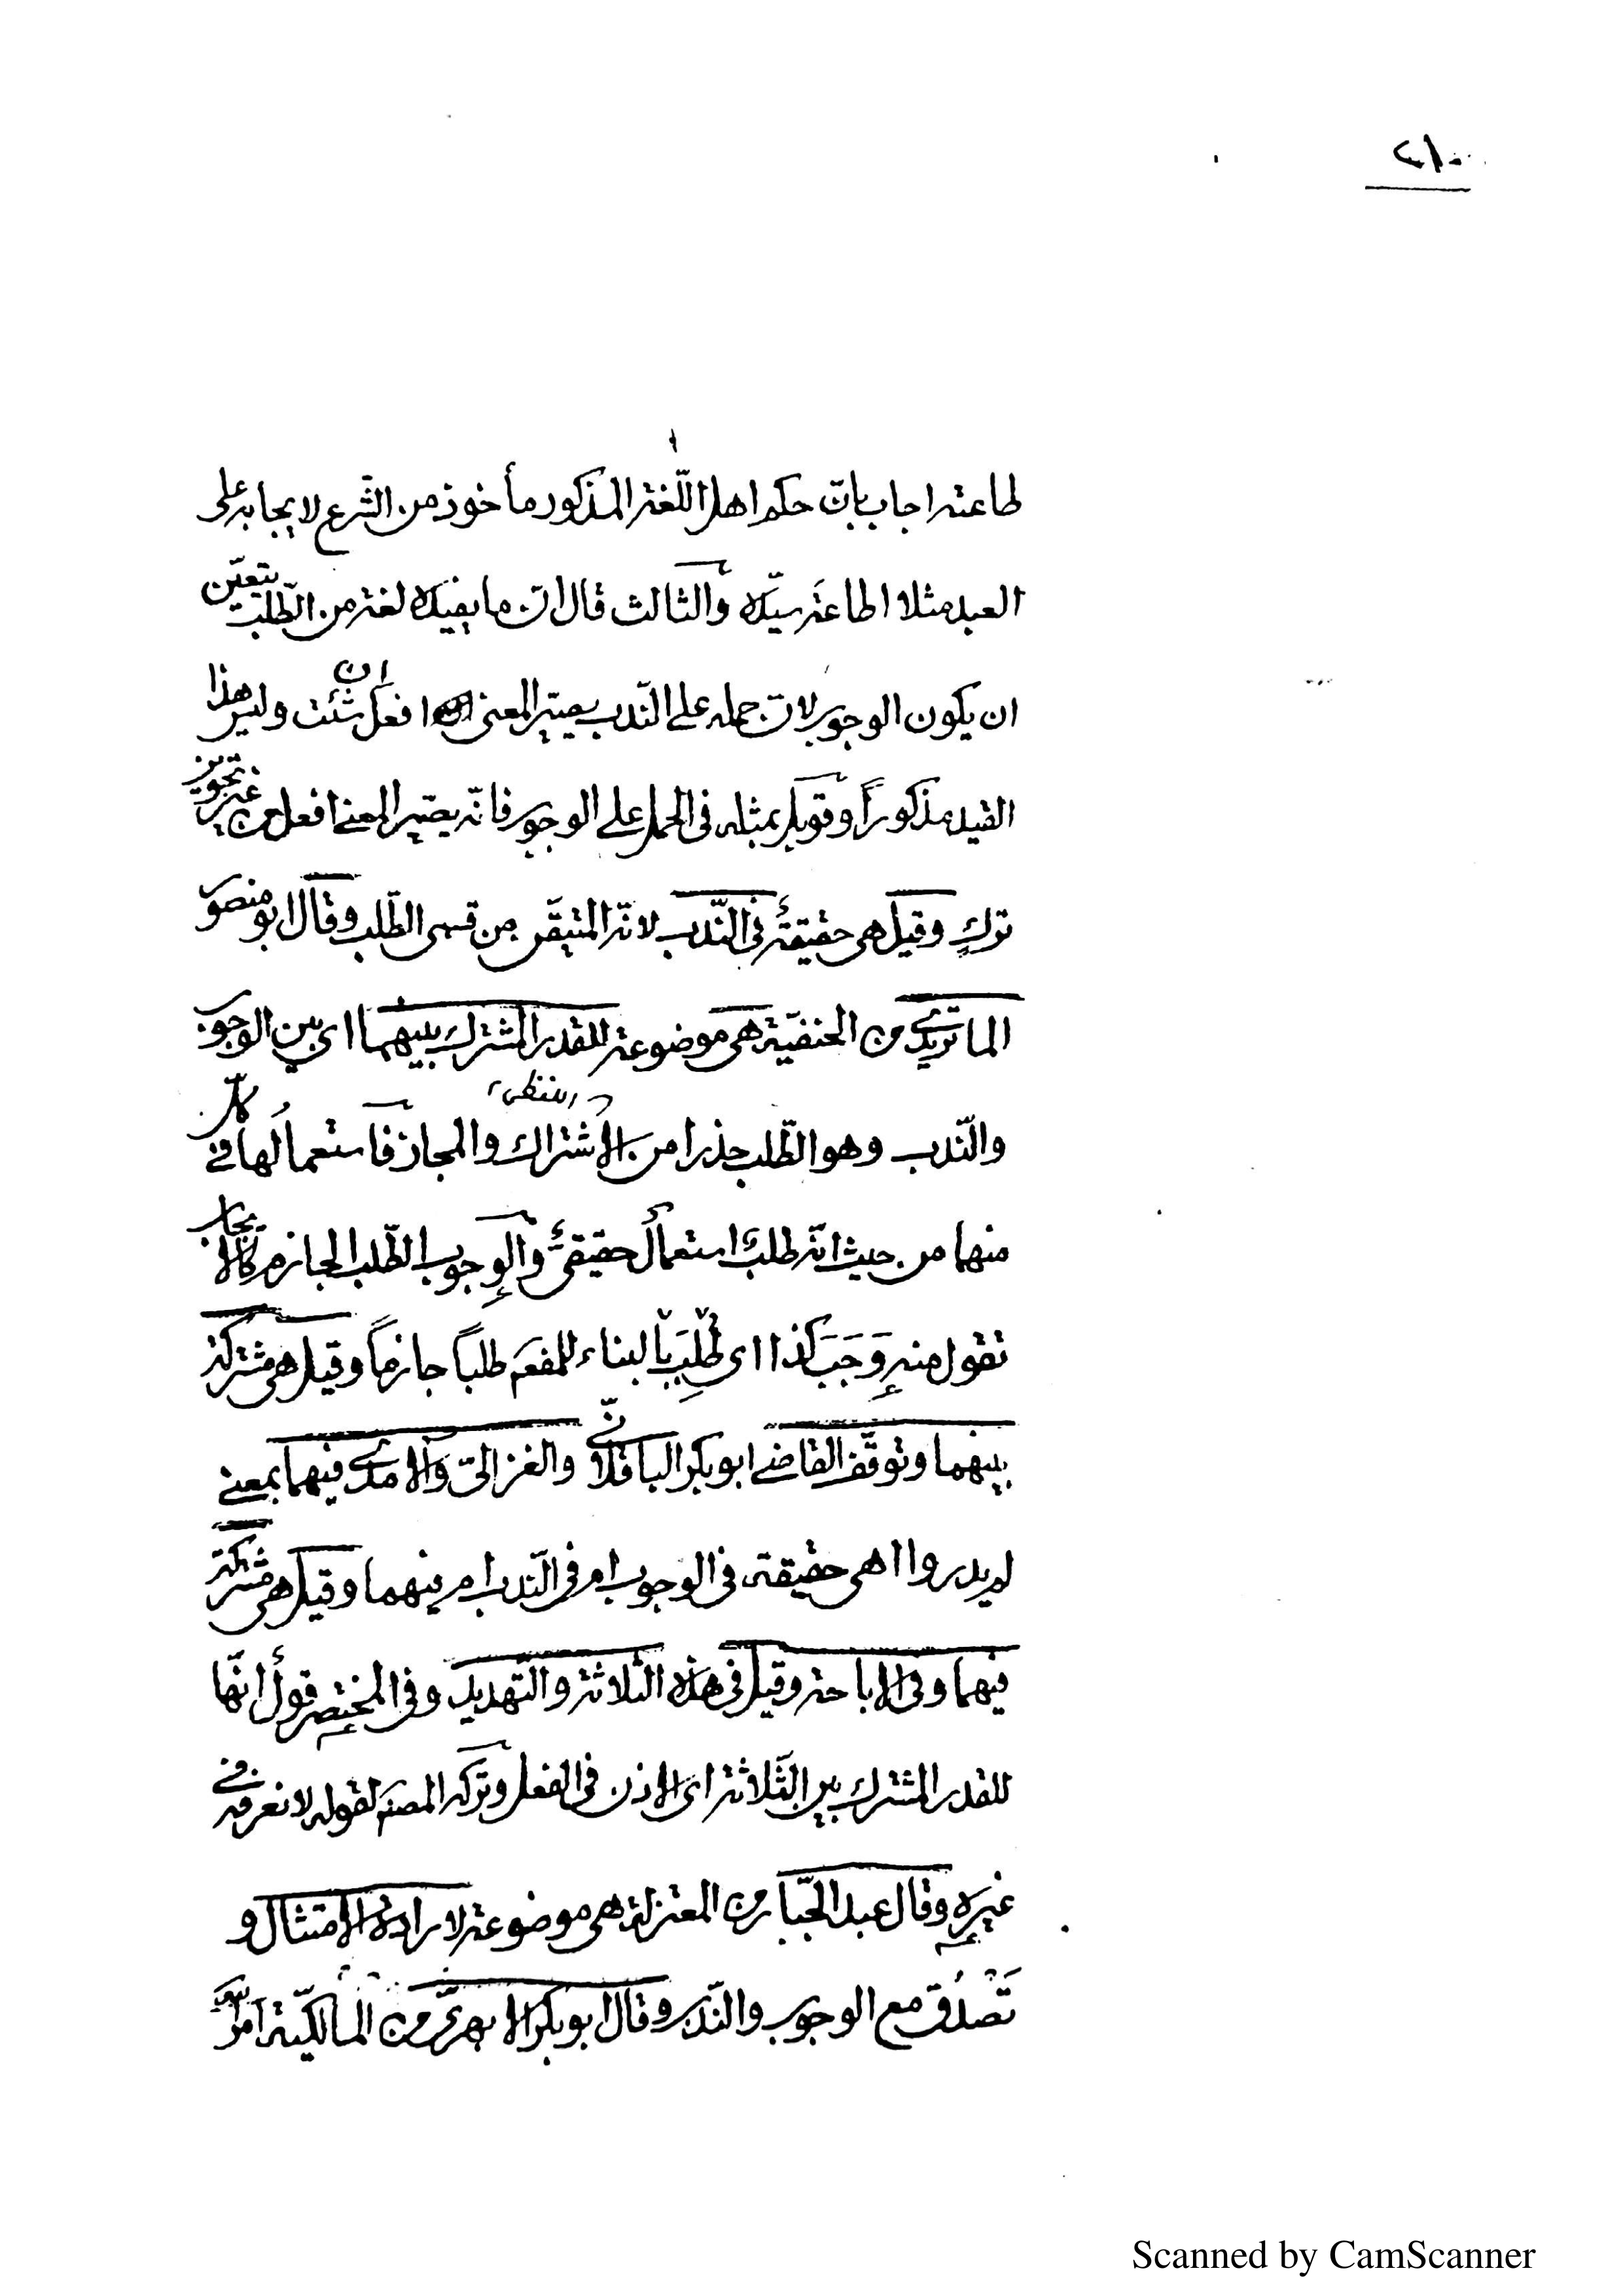 ٢١٠
طاعته اجاب بانّ حكم اهل اللّغة المذكور مأخوذ من الشّرع لايجابه على
العبد مثلا اطاعةَ سيّده والثالث قال انّ ما يفيده لغة من الطّلب يتعيّن
ان يكون الوجوب لانّ حمله على النّدب يصيّر المعنى افعل ان شئت وليس هذا
القيد مذكوراً وقوبل بمثله فى الحمل على الوجوب فانّه يصيّر المعنى افعل من غير تجويز
تركٍ وقيل هى حقيقةٌ فى النّدب لانّه المتيقّن من قسمى الطّلب وقال ابو منصور
الماتريدى من الحنفيّة هى موضوعة للقدر المشترك بينهما اى بين الوجوب
والنّدب وهو الطّلب حذرا من الاشتراك والمجاز فاستعمالُها فى كلّ
اللفظى
منهما من حيث انّه طلبٌ استعمالٌ حقيقىٌّ والوجوب الطّلب الجازم كالايجاب
تقول منه وَجَبَ كذا اى طُلِبَ بالبناء للمفعم طلباً جازماً وقيل هى مشتركة
بينهما وتوقّف القاضى ابو بكر الباقلانّى والغزالىّ والآمدى فيهما بمعنى
لم يدروا اهى حقيقة فى الوجوب ام فى النّدب ام فيهما وقيل هى مشتركة
فيهما وفى الاباحة وقيل فى هذه الثّلاثة والتّهديد وفى المختصر قولٌ انّها
للقدر المشترك بين الثّلاثة اى الاذن فى الفعل وتركه المصنف لقوله لا نعرفه فى
غيرِه وقال عبد الجّبار من المعتزلة هى موضوعة لارادة الامتثال و
تَصْدُق مع الوجوب والنّدب وقال ابو بكر الابهرىّ من المالكيّة امر اللّه
Scanned by CamScanner